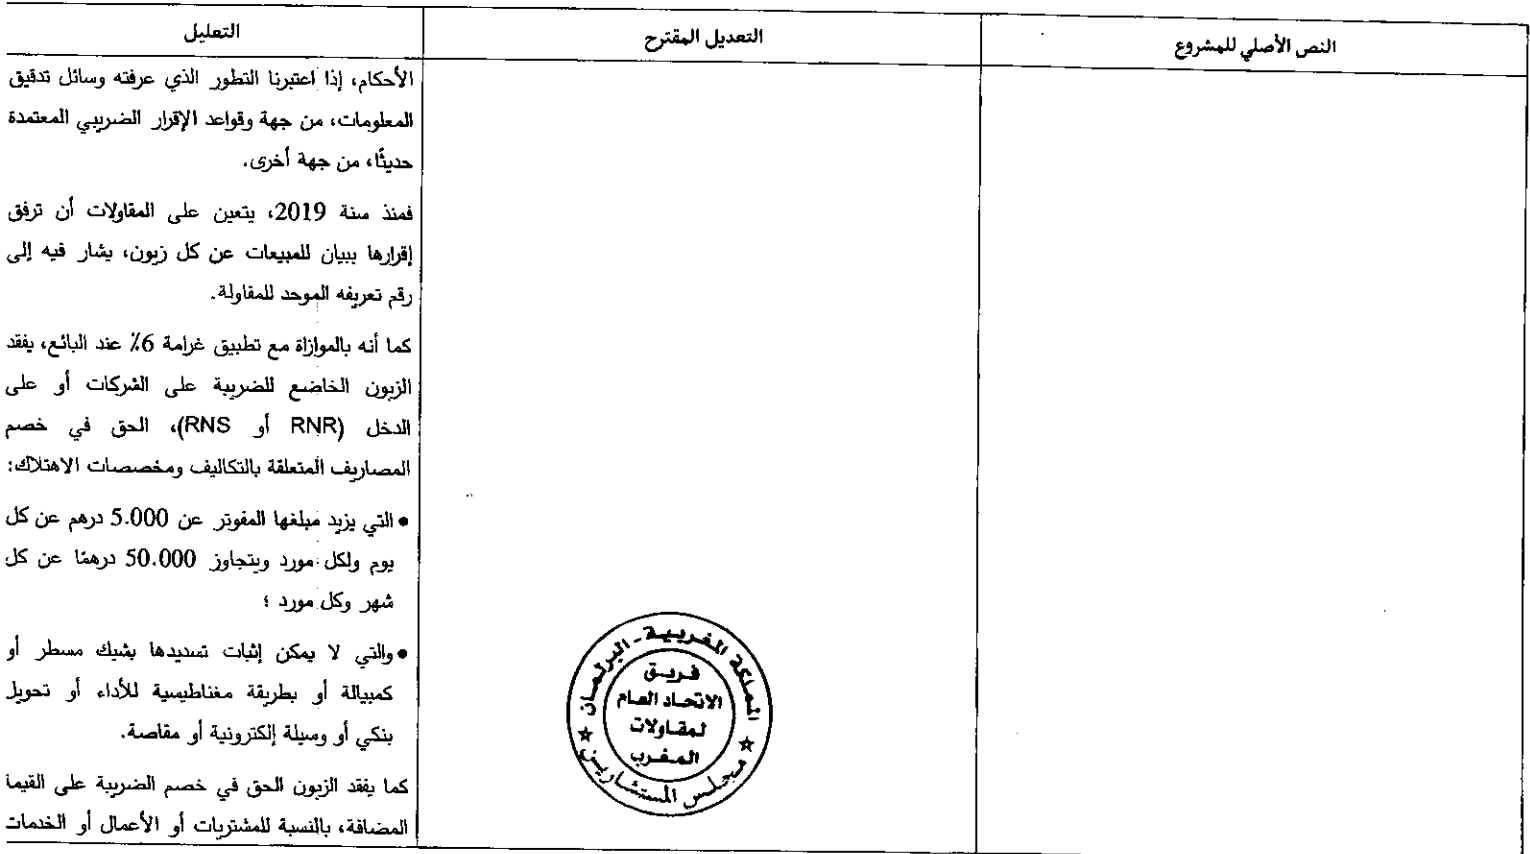 النص الأصلي للمشروع
التعديل المقترح
التعليل
الأحكام، إذا اعتبرنا التطور الذي عرفته وسائل تدقيق
المعلومات، من جهة وقواعد الإقرار الضريبي المعتمدة
حديثًا، من جهة أخرى.
فمنذ سنة 2019، يتعين على المقاولات أن ترفق
إقرارها ببيان للمبيعات عن كل زبون، يشار فيه إلى
رقم تعريفه الموحد للمقاولة.
كما أنه بالموازاة مع تطبيق غرامة 6% عند البائع، يفقد
الزبون الخاضع للضريبة على الشركات أو على
الدخل (RNR أو RNS)، الحق في خصم
المصاريف المتعلقة بالتكاليف ومخصصات الاهتلاك:
• التي يزيد مبلغها المفوتر عن 5.000 درهم عن كل
يوم ولكل مورد ويتجاوز 50.000 درهمًا عن كل
شهر وكل مورد ؛
• والتي لا يمكن إثبات تسديدها بشيك مسطر أو
كمبيالة أو بطريقة مغناطيسية للأداء أو تحويل
بنكي أو وسيلة إلكترونية أو مقاصة.
كما يفقد الزبون الحق في خصم الضريبة على القيمة
المضافة، بالنسبة للمشتريات أو الأعمال أو الخدمات
المملكة المغربية - البرلمان
فريق
الاتحاد العام
لمقاولات
المغرب
مجلس المستشارين